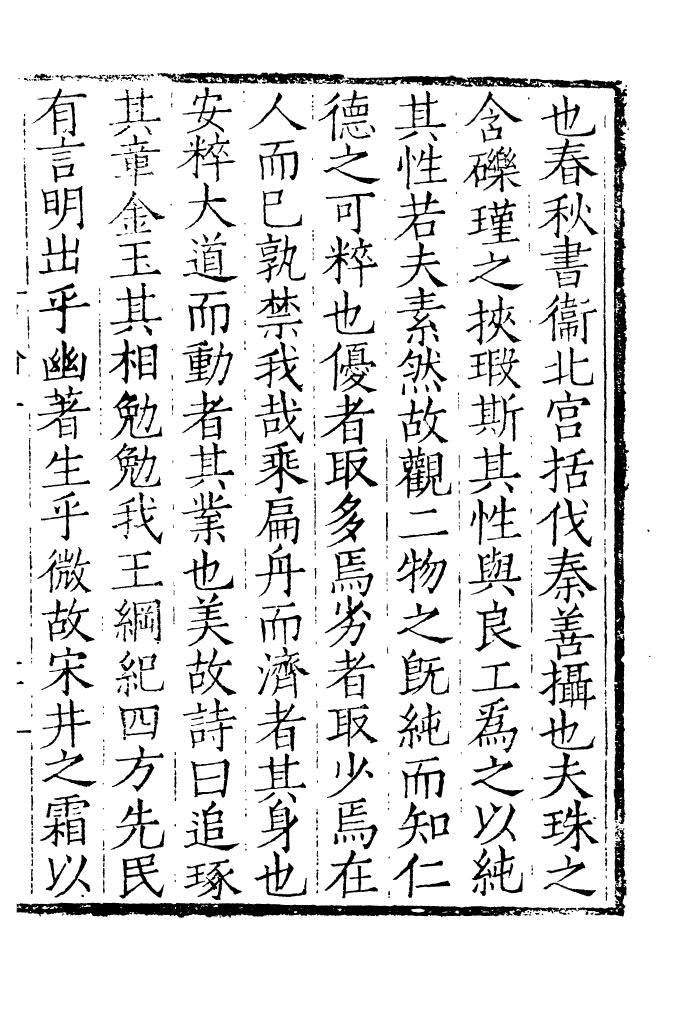 也春秋書衞北宮括伐秦善攝也夫珠之
含礫瑾之挾瑕斯其性與良工爲之以純
其性若夫素然故觀二物之旣純而知仁
德之可粹也優者取多焉劣者取少焉在
人而已孰禁我哉乘扁舟而濟者其身也
安粹大道而動者其業也美故詩曰追琢
其章金玉其相勉勉我王綱紀四方先民
有言明出乎幽著生乎微故宋井之霜以